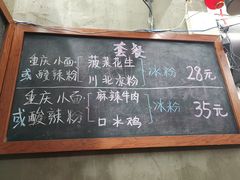 套餐
重庆小面 菠菜花生 冰粉 28元
或酸辣粉 川北凉粉
重庆小面 麻辣牛肉 冰粉 35元
或酸辣粉 口水鸡